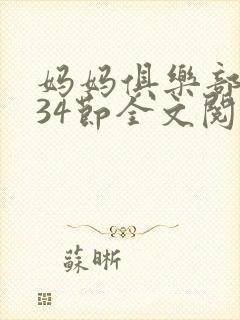 妈妈俱樂部
34節全文閱
蘇晰